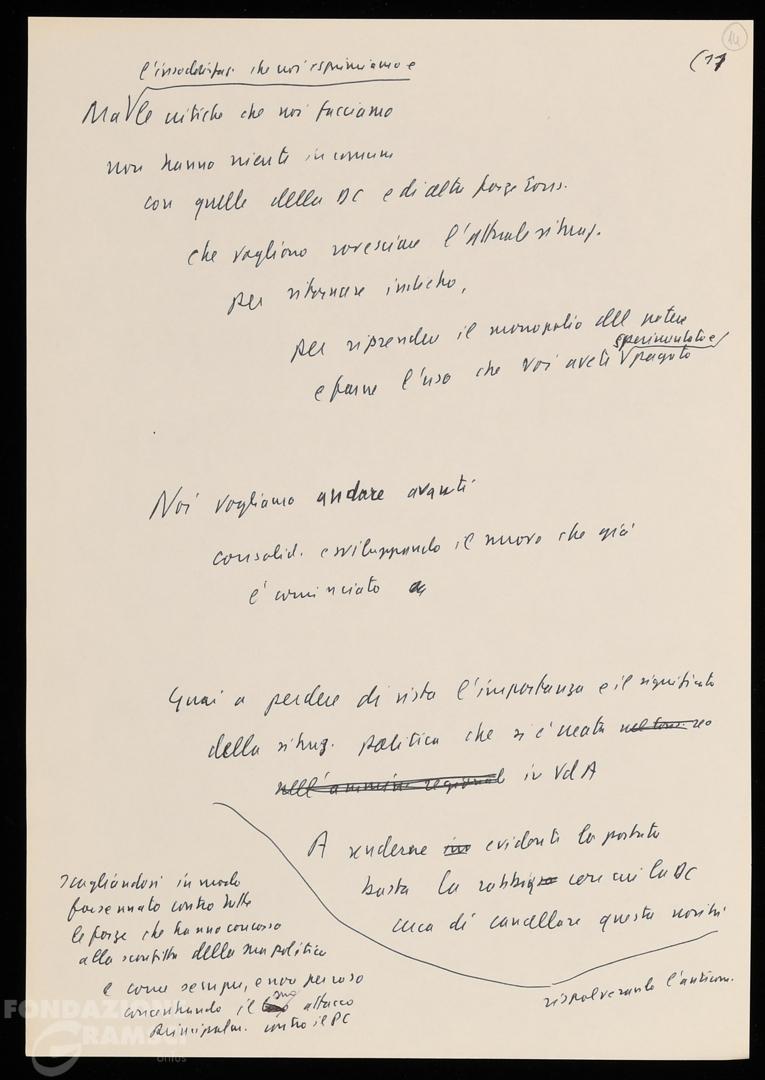 14
(11
l'insoddisfaz. che noi esprimiamo e
Ma le critiche che noi facciamo
non hanno niente in comune
con quelle della DC e di altre forze cons.
che vogliono rovesciare l'attuale situaz.
per ritornare indietro,
per riprendere il monopolio del potere
sperimentato e
e farne l'uso che voi avete pagato
Noi vogliamo andare avanti
consolid. e sviluppando il nuovo che già
è cominciato
Guai a perdere di vista l'importanza e il significato
della situaz. politica che si è creata
nell'amminis. regional in VdA
A renderne evidente la portata
basta la rabbia con cui la DC
cerca di cancellare questa novità
rispolverando l'anticom.
scagliandosi in modo
forsennato contro tutte
le forze che hanno concorso
alla sconfitta della sua politica
e come sempre, e non per caso
concentrando il suo attacco
principalm. contro il PC
FONDAZIONE
GRAMSCI
onlus